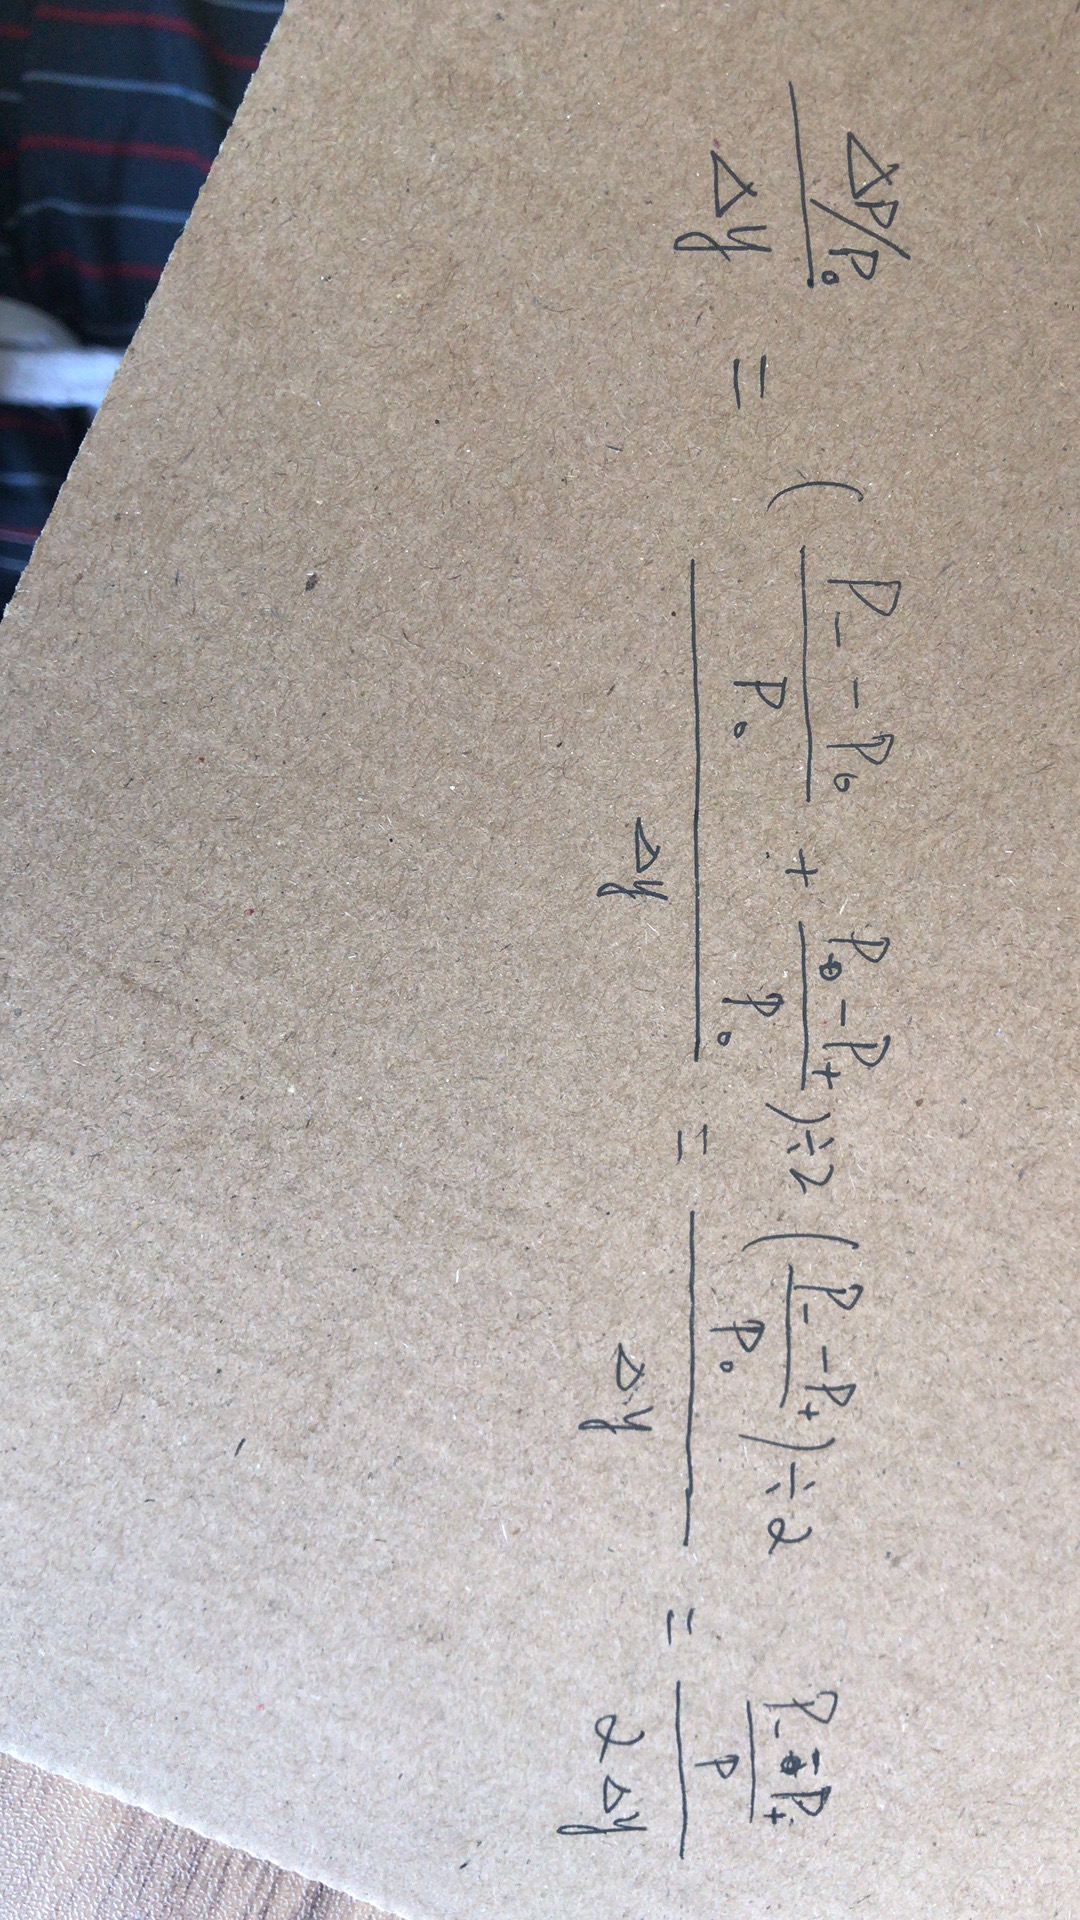 (ΔP/P₀)/Δy = ((P₋ - P₀)/P₀ + (P₀ - P₊)/P₀) ÷ 2 / Δy = ((P₋ - P₊)/P₀) ÷ 2 / Δy = ((P₋ - P₊)/P) / 2Δy